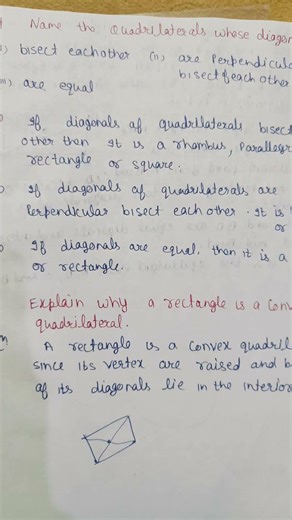 Name the Quadrilaterals whose
) bisect eachother (ii) are
bisect eachother
) are equal
If diagonals of quadrilaterals bisect
other then It is a rhombus,
rectangle or square.
If diagonals of quadrilaterals are
Perpendicular bisect each other. It is
or
If diagonals are equal. then it is a
or rectangle.
Explain why a rectangle is a
quadrilateral.
A rectangle is a convex
since its vertex are raised and
of its diagonals lie in the interior